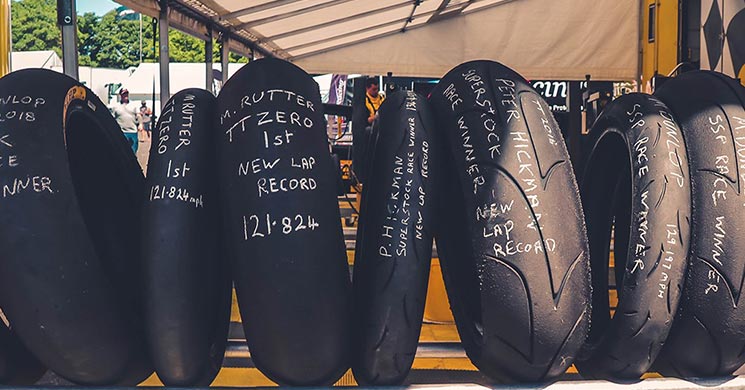 NLOP
2018
K
CE
NNER
RUTTER
TT ZERO
1st
121.824 mph
M. RUTTER
TT ZERO
1st
NEW LAP
RECORD
121.824
P. HICKMAN
SUPERSTOCK RACE WINNER
NEW LAP RECORD
SUPERSTOCK
RACE WINNER
PETER HICKMAN
TT 2018
NEW
LAP
RECORD
DUNLOP
SSP RACE WINNER
129.197 MPH
SSP RACE WINNER